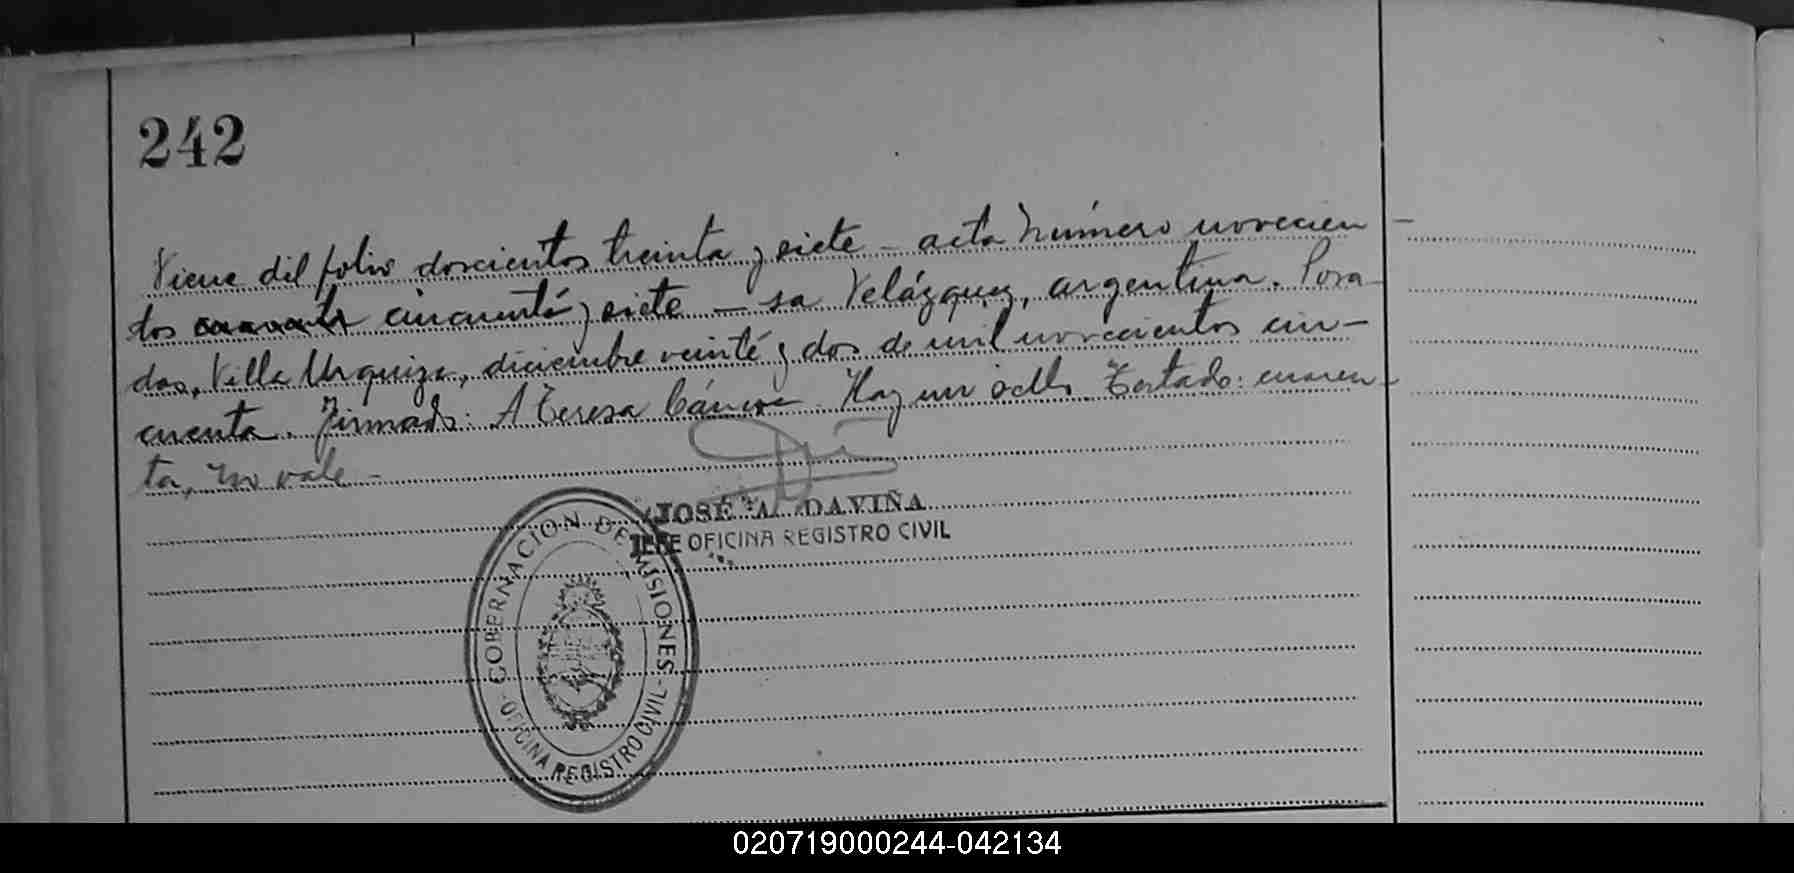 242
Viene del folio doscientos treinta y siete - acta número novecien
tos cincuenta y siete - sa Velázquez, argentina. Posa
das, Villa Urquiza, diciembre veinte y dos de mil novecientos cin-
cuenta. Firmado: A Teresa Hay un sello. Testado: cuaren-
ta, no vale -
JOSÉ A. DAVIÑA
JEFE OFICINA REGISTRO CIVIL
GOBERNACION DE MISIONES
- OFICINA REGISTRO CIVIL -
020719000244-042134